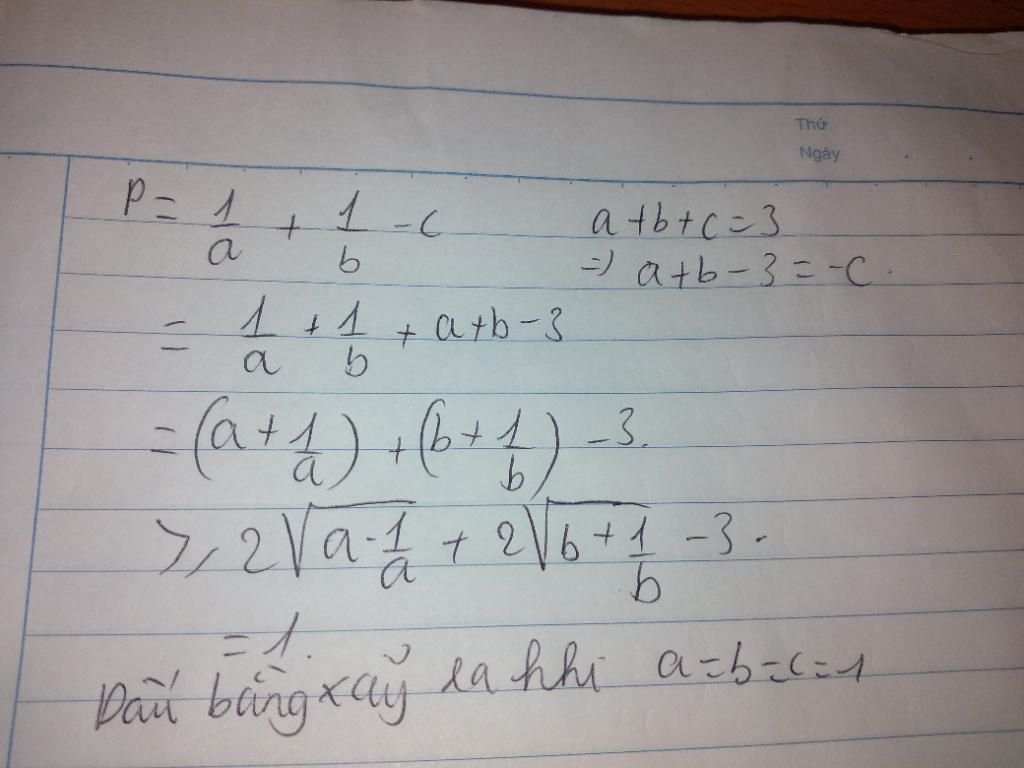 Thứ
Ngày
P = 1/a + 1/b - c
a+b+c=3
=) a+b-3=-c.
= 1/a + 1/b + a+b-3
= (a + 1/a) + (b + 1/b) - 3.
≥ 2√(a·1/a) + 2√(b + 1/b) - 3.
= 1.
Dấu bằng xảy ra khi a=b=c=1